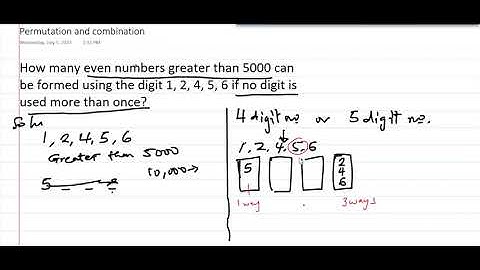 Permutation and combination
How many even numbers greater than 5000 can
be formed using the digit 1, 2, 4, 5, 6 if no digit is
used more than once?
Soln
1, 2, 4, 5, 6
Greater than 5000
10,000→
5
4 digit no. or 5 digit no.
1, 2, 4, 5, 6
5
2
4
6
1 way
3 ways